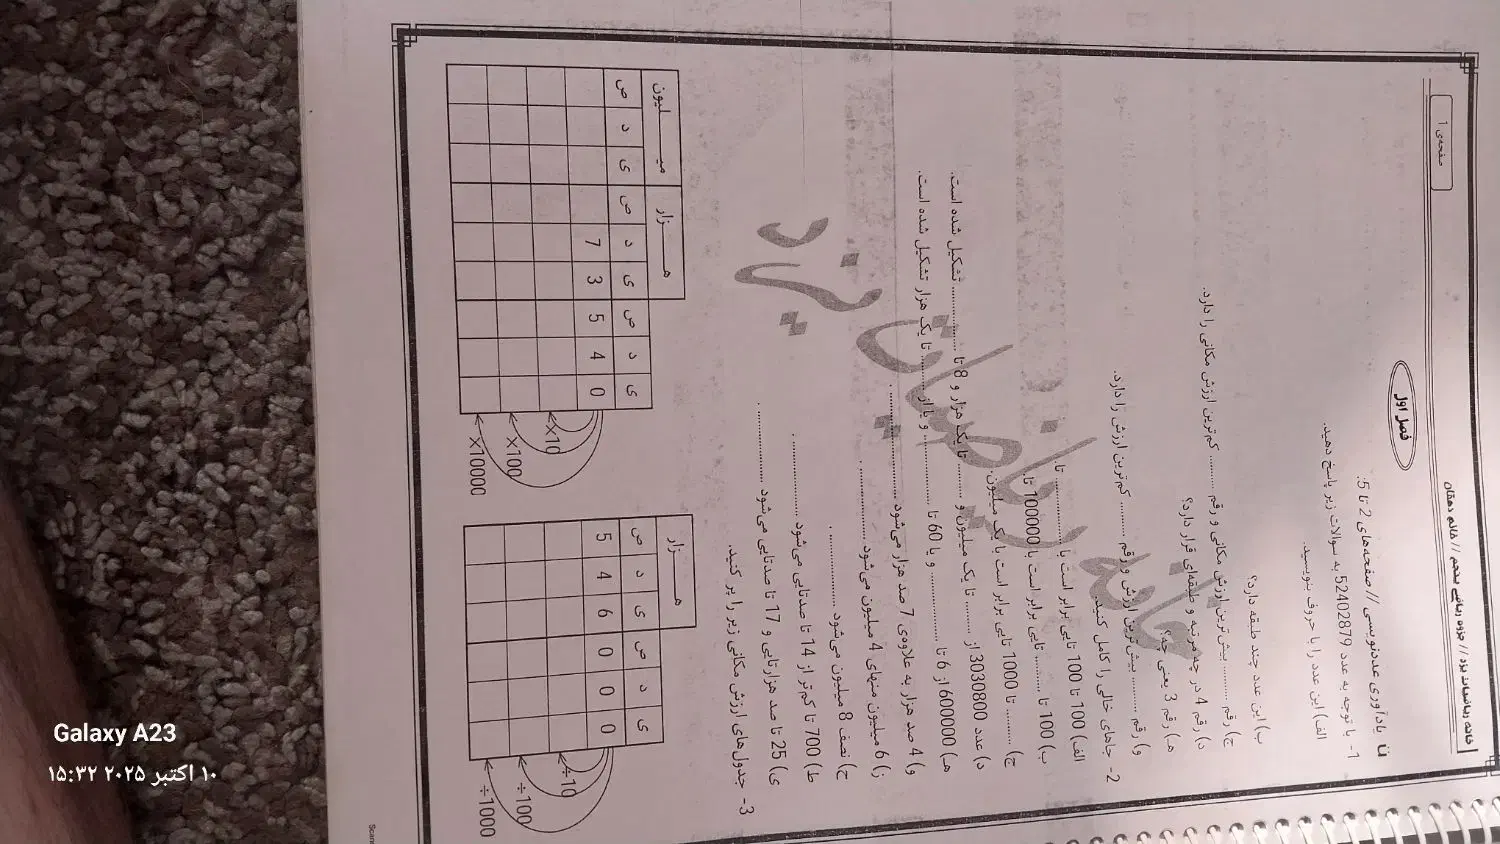 خانه ریاضیات یزد // جزوه ریاضی پنجم // خانم دهقان
صفحه‌ی 1
فصل اول
یادآوری عددنویسی // صفحه‌های 2 تا 5:
1- با توجه به عدد 52402879 به سوالات زیر پاسخ دهید.
الف) این عدد را با حروف بنویسید.
ب) این عدد چند طبقه دارد؟
ج) رقم .......... بیش‌ترین ارزش مکانی و رقم .......... کم‌ترین ارزش مکانی را دارد.
د) رقم 4 در چه مرتبه و طبقه‌ای قرار دارد؟
هـ) رقم 3 یعنی چه؟
و) رقم .......... بیش‌ترین ارزش و رقم .......... کم‌ترین ارزش را دارد.
2- جاهای خالی را کامل کنید.
الف) 100 تا 100 تایی برابر است با .......... تا.
ب) 100 تا .......... تایی برابر است با 100000 تا.
ج) .......... تا 1000 تایی برابر است با یک میلیون.
د) عدد 3030800 از .......... تا یک میلیون و .......... تا یک هزار و 8 تا .......... تشکیل شده است.
هـ) 6600000 از 6 تا .......... و یا 60 تا .......... و یا از .......... تا یک هزار تشکیل شده است.
و) 4 صد هزار به علاوه‌ی 7 صد هزار می‌شود ..........
ز) 6 میلیون منهای 4 میلیون می‌شود ..........
ح) نصف 8 میلیون می‌شود ..........
ط) 700 تا کم‌تر از 14 تا صدتایی می‌شود ..........
ی) 25 تا صد هزارتایی و 17 تا صدتایی می‌شود ..........
3- جدول‌های ارزش مکانی زیر را پر کنید.
میــــلیون هــــزار
ص د ی ص د ی ص د ی
7 3 5 4 0
×10
×100
×10000
هــــزار
ص د ی ص د ی
5 4 6 0 0 0
÷10
÷100
÷1000
خانه ریاضیات یزد
Galaxy A23
۱۰ اکتبر ۲۰۲۵ ۱۵:۳۲